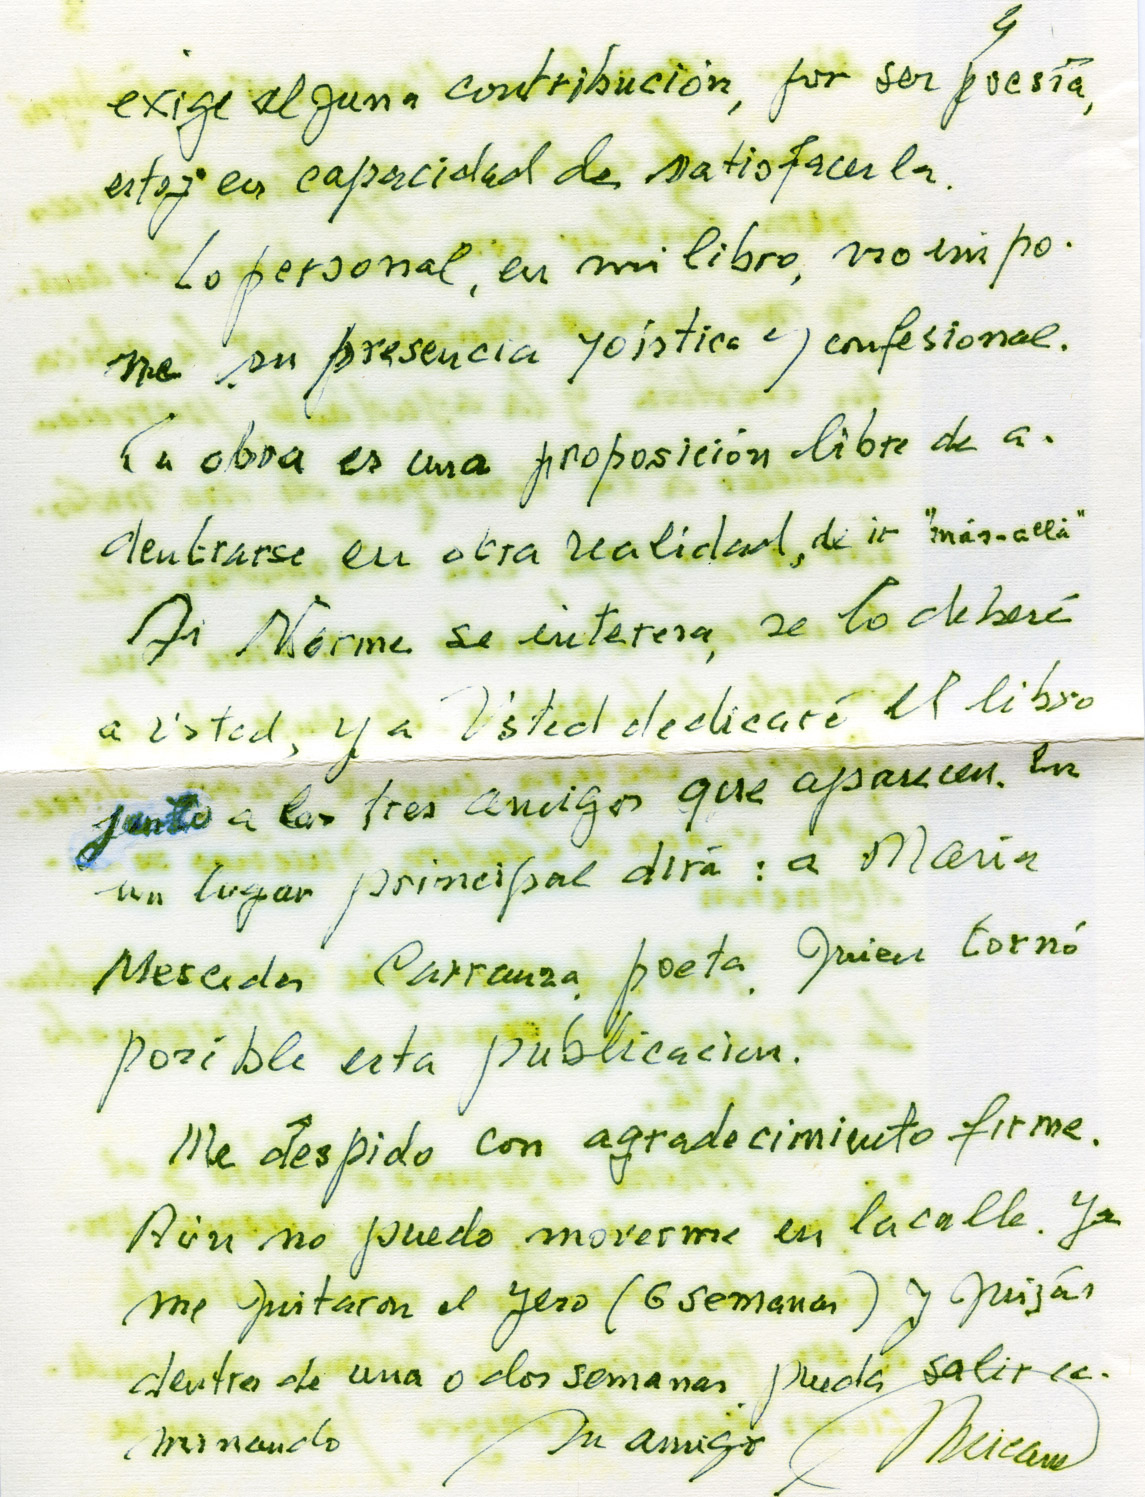 4
exige alguna contribución, por ser poesía,
estoy en capacidad de satisfacerla.
Lo personal, en mi libro, no impo-
ne su presencia yoística y confesional.
La obra es una proposición libre de a-
dentrarse en otra realidad, de ir "más-allá"
Si Norma se interesa, se lo deberé
a Usted, y a Usted dedicaré el libro
junto a los tres amigos que aparecen. En
un lugar principal dirá: a María
Mercedes Carranza, poeta, quien tornó
posible esta publicacion.
Me despido con agradecimiento firme.
Aún no puedo moverme en la calle. Ya
me quitaron el yeso (6 semanas) y quizás
dentro de una o dos semanas pueda salir ca-
minando Su amigo